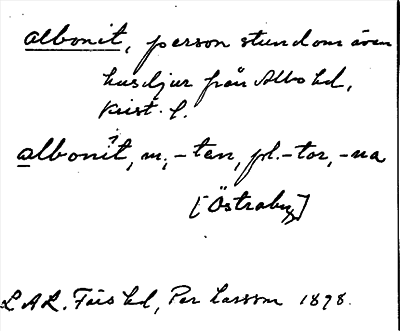 albonit, person stundom även
husdjur från Albo hd,
Krist. l.
albonit, m., -ten, pl. -tor, -na
[Östraby]
LAL. Färs hd, Per Larsson 1898.